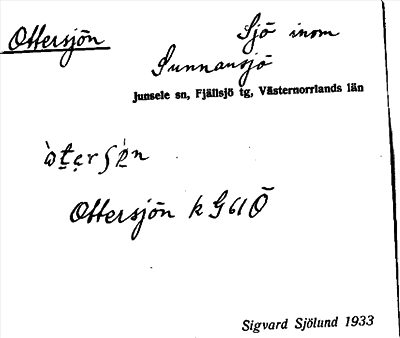 Ottersjön
Sjö inom
Sunnansjö
Junsele sn, Fjällsjö tg, Västernorrlands län
Ottersjön k G61 Ö
Sigvard Sjölund 1933